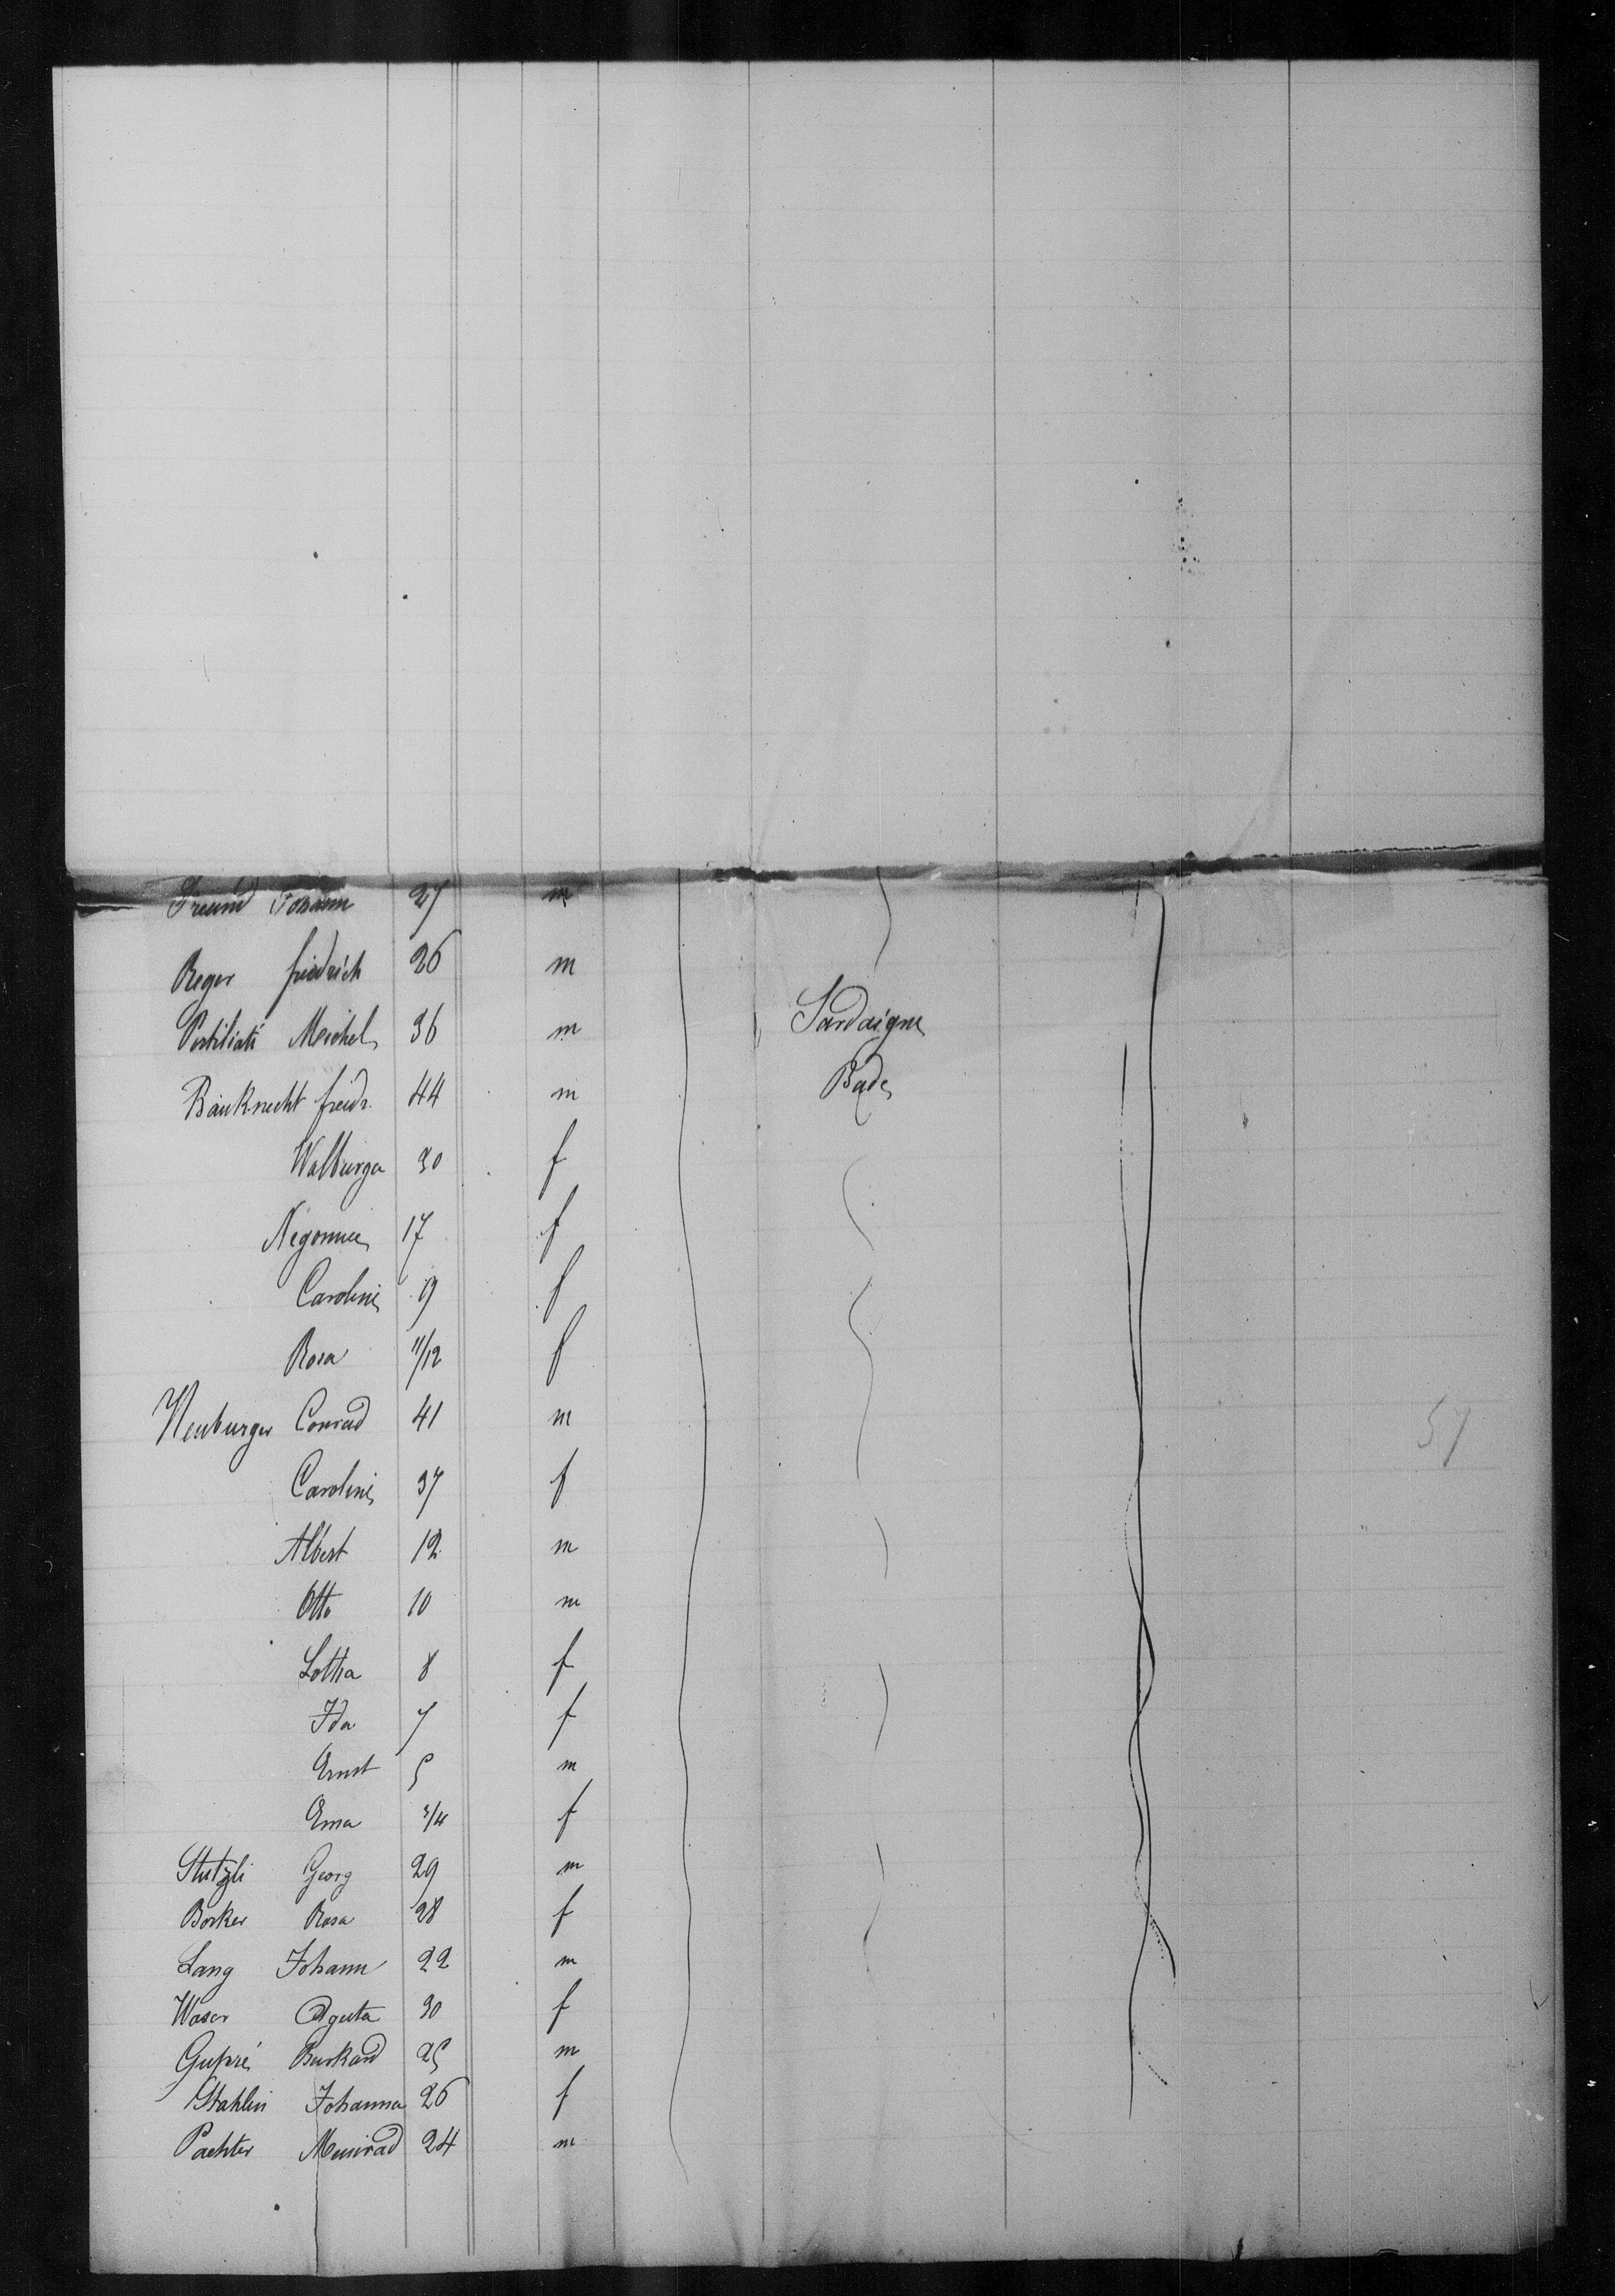 Freund Johann 27 m
Reger friedrich 26 m
Pestiliati Meichel 36 m Sardaigne
Bauknecht freidr. 44 m Bade
Walburga 30 f
Negonnie 17 f
Caroline 9 f
Rosa 11/12 f
Neuburger Conrad 41 m
57
Caroline 37 f
Albert 12 m
Otto 10 m
Lottia 8 f
Ida 7 f
Ernst 5 m
Ema 3/4 f
Stutzli Georg 29 m
Borker Rosa 28 f
Lang Johann 22 m
Waser Aguta 30 f
Gupré Burkard 25 m
Stahlin Johanna 26 f
Pachter Meinrad 24 m